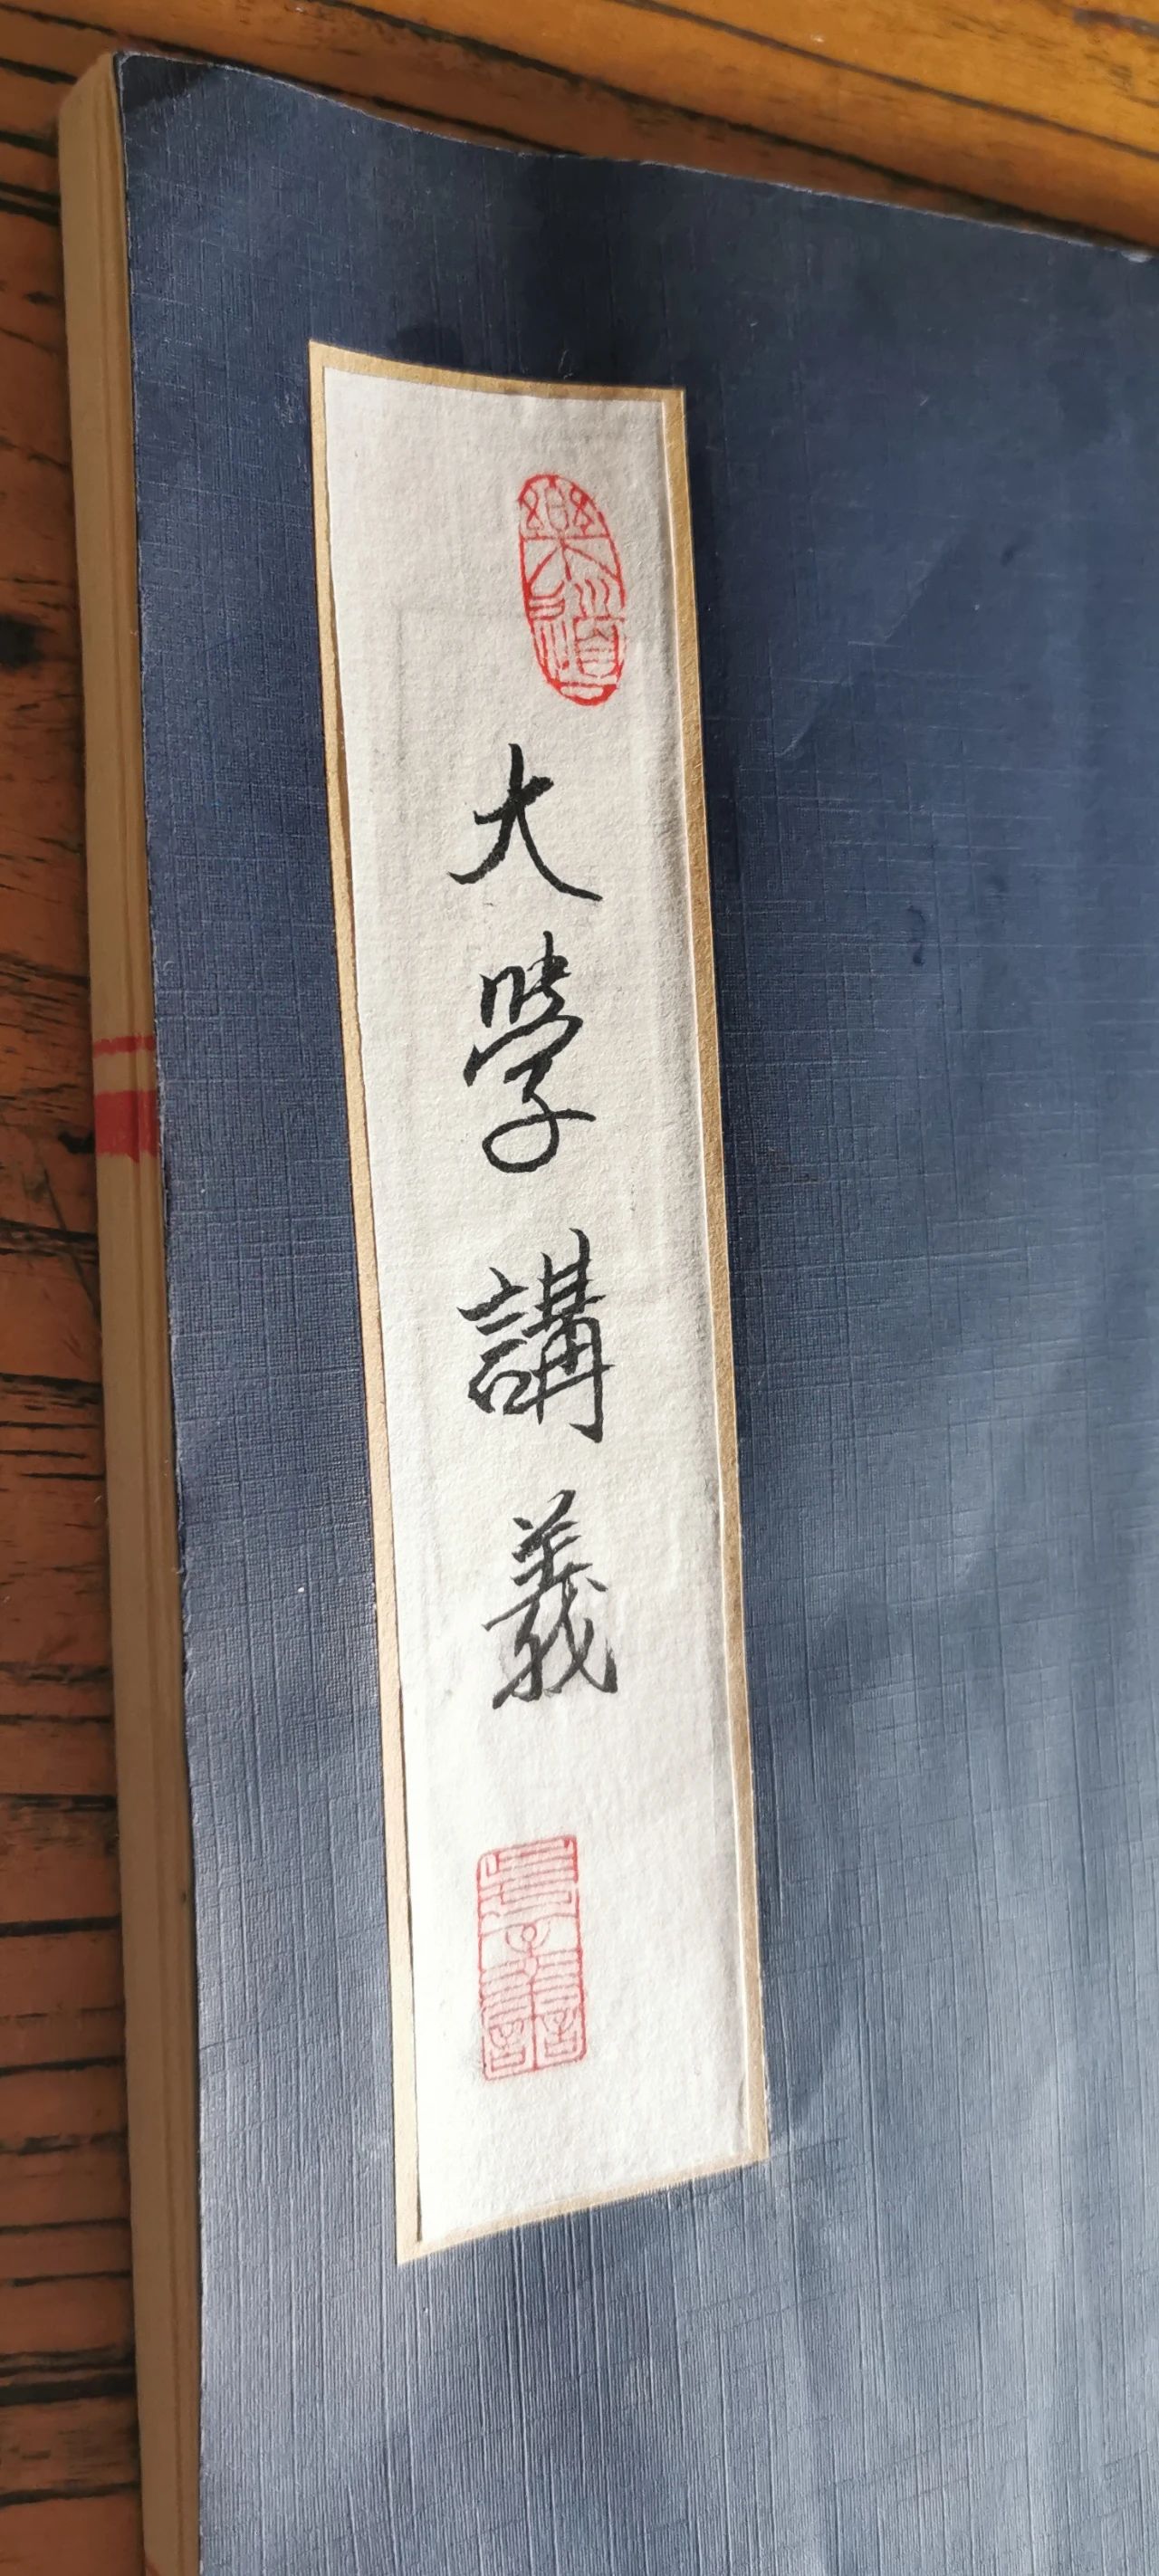 大學講義